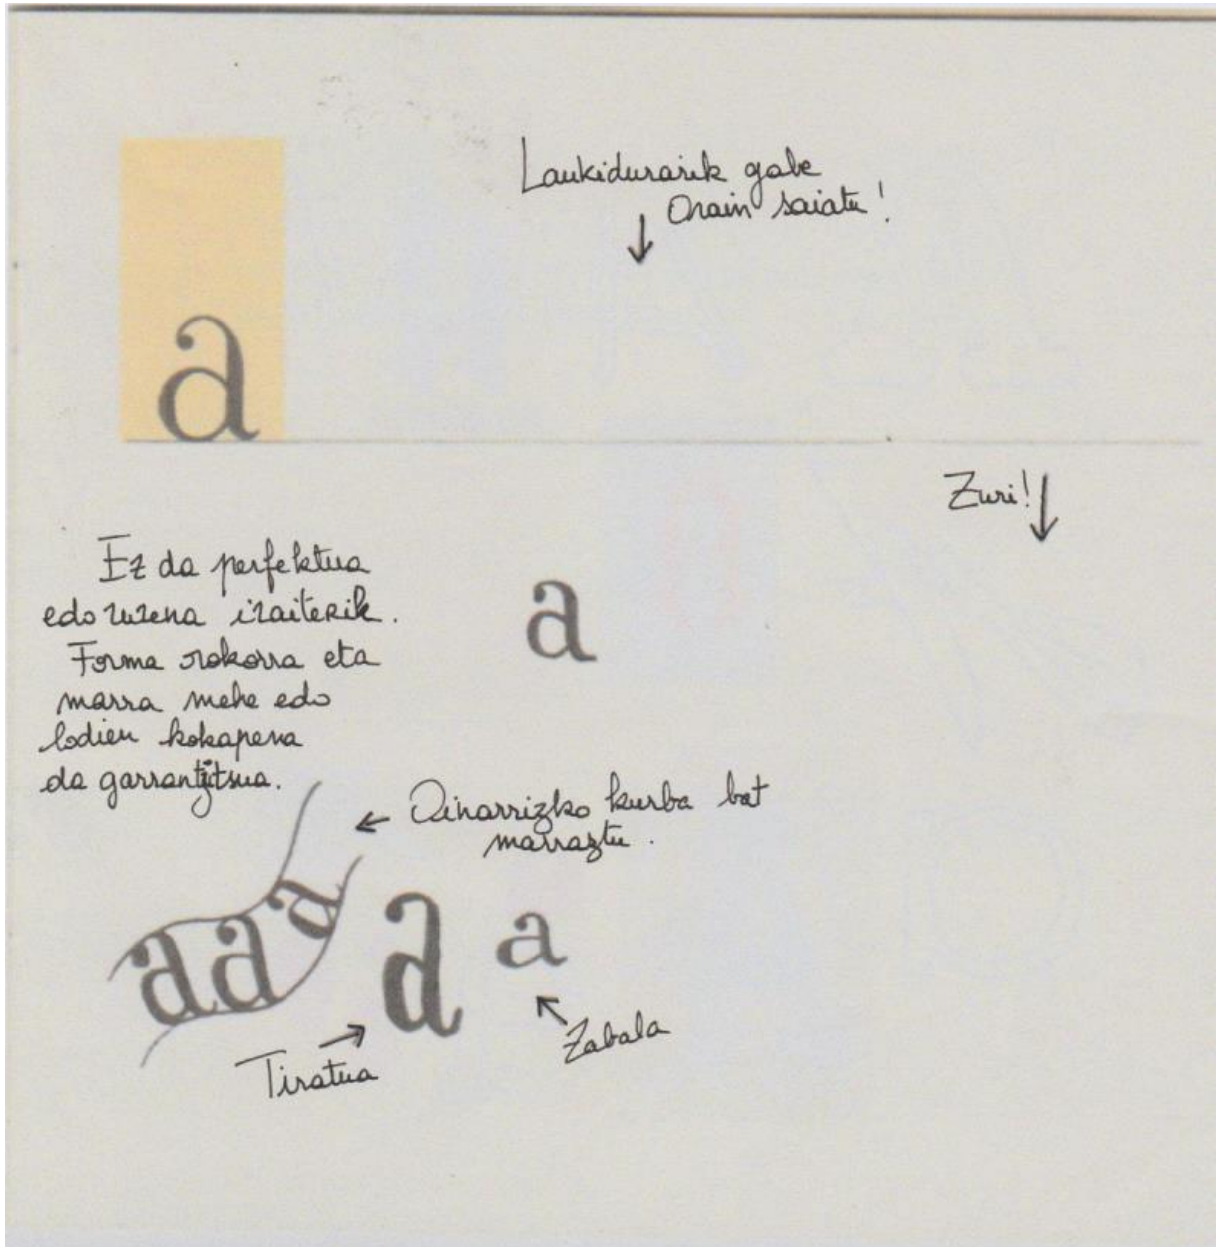 Laukidurarik gabe
Orain saiatu!
a
Zuri!
Ez da perfektua
edo zuzena izaiterik.
Forma orokorra eta
marra mehe edo
lodien kokapena
da garrantzitsua.
a
Oinarrizko kurba bat
marraztu.
aaa
a
a
Tiratua
Zabala